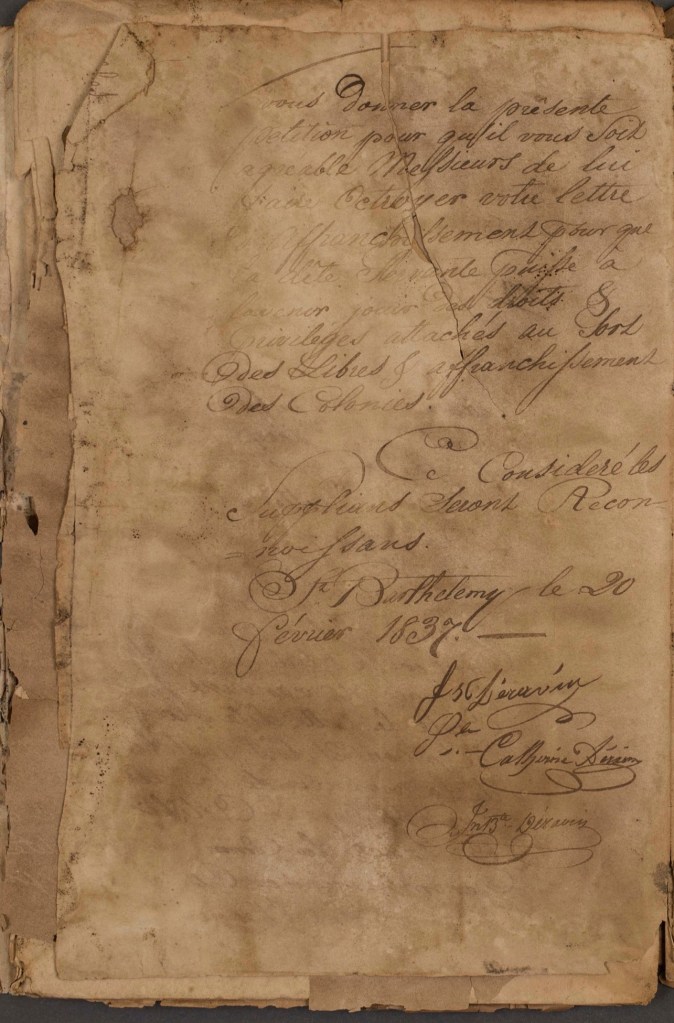 vous donner la présente
petition pour qu'il vous soit
agreable Messieurs de lui
faire Octroyer votre lettre
d'affranchissement pour que
la dite puisse a
l'avenir jouir des droits &
Privileges attachés au Sort
Des Libres & affranchissement
Des Colonies.
Ce Consideré les
Supplians Seront Recon-
-noissans.
St. Barthelemy le 20
février 1837. —
Catherine Déravin
Jn Bte Deravin